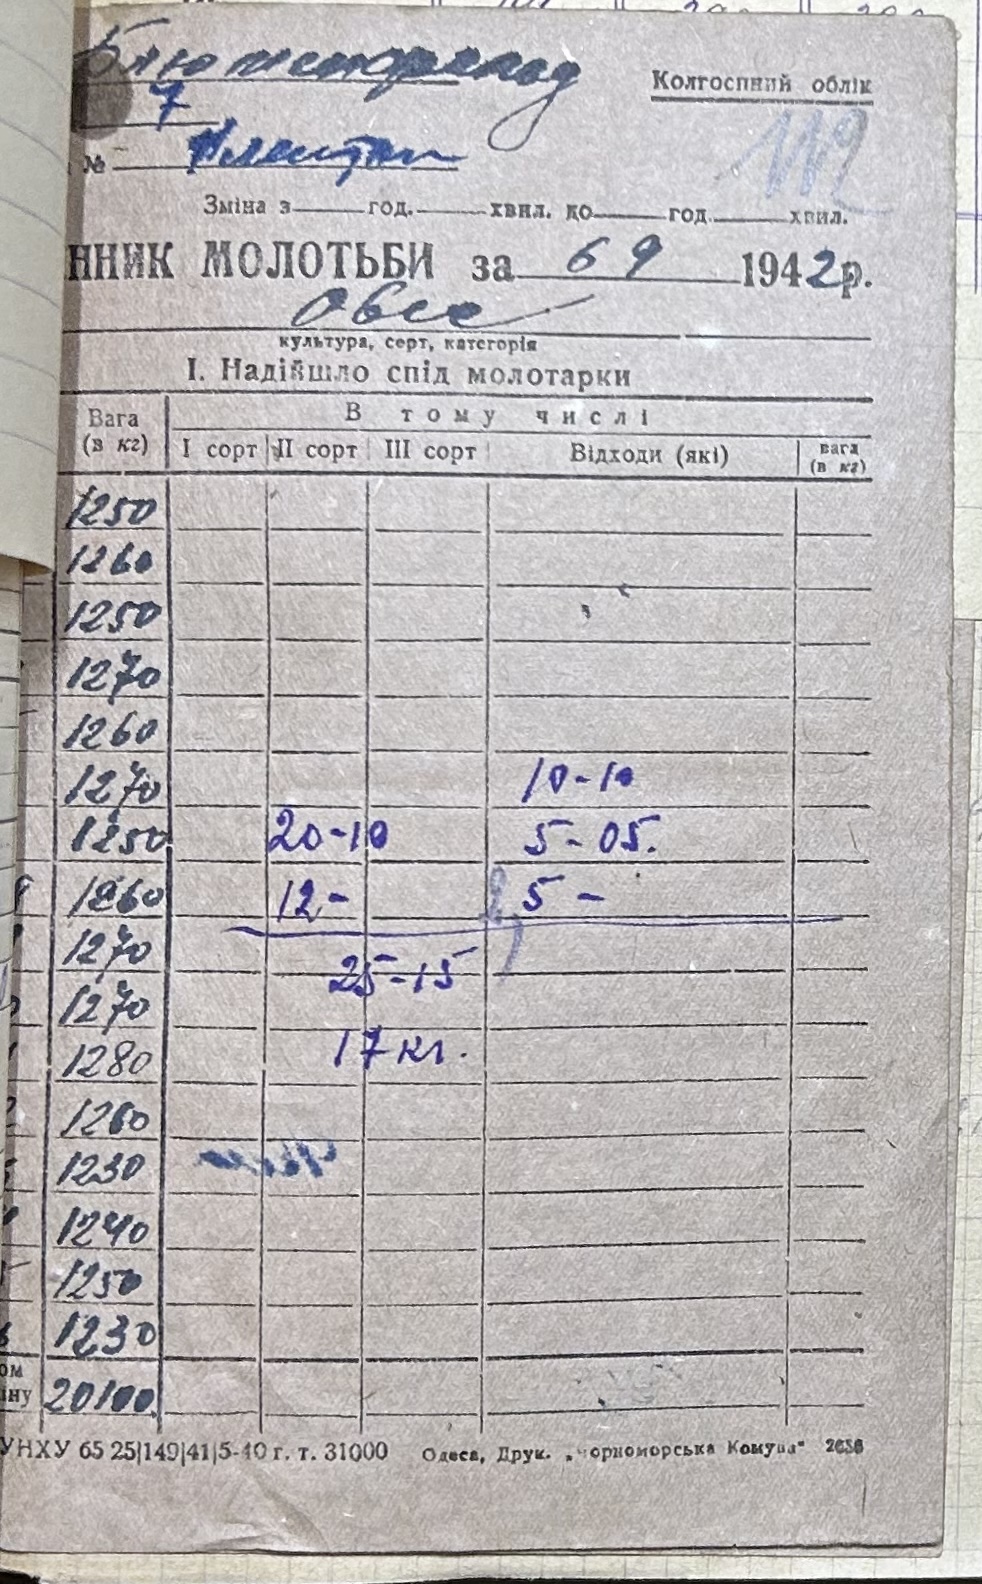 Колгоспний облік
7
112
№
Зміна з год. хвил. до год. хвил.
нник молотьби за 6 9 1942 р.
Овес
культура, серт, категорія
I. Надійшло спід молотарки
Вага (в кг) В тому числі
I сорт II сорт III сорт Відходи (які) вага (в кг)
1250
1260
1250
1270
1260
1270 10-10
1250 20-10 5-05.
1260 12- 5-
1270 25-15
1270
1280 17 кг.
1260
1230
1240
1250
1230
ом
ину 20100
УНХУ 65 25|149|41|5-40 г. т. 31000 Одеса, Друк. „Чорноморська Комуна"